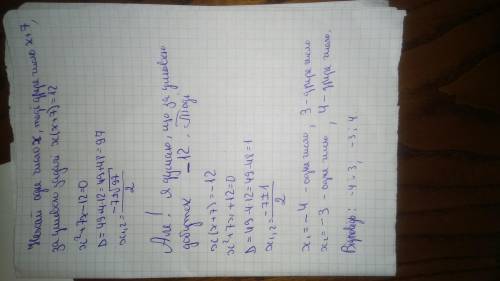 Нехай одне число x, тоді друге число x+7,
за умовою задачі x(x+7)=12
x²+7x-12=0
D=49+4·12=49+48=97
x₁,₂=(-7±√97)/2
Але! Я думаю, що за умовою
добуток -12. Тоді
x(x+7)=-12
x²+7x+12=0
D=49-4·12=49-48=1
x₁,₂=(-7±1)/2
x₁=-4 - одне число, 3 - друге число
x₂=-3 - одне число, 4 - друге число.
Відповідь: -4 і 3; -3 і 4